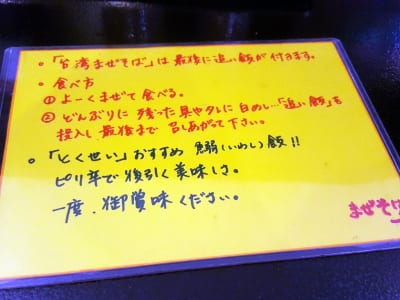 ○「台湾まぜそば」は最後に追い飯が付きます。
○ 食べ方
① よーくまぜて食べる。
② どんぶりに残った具やタレに白めし…「追い飯」を
投入し最後まで召しあがって下さい。
○「とくせい」おすすめ 鰯(いわし)飯!!
ピリ辛で後引く美味しさ。
一度、御賞味ください。
まぜそば